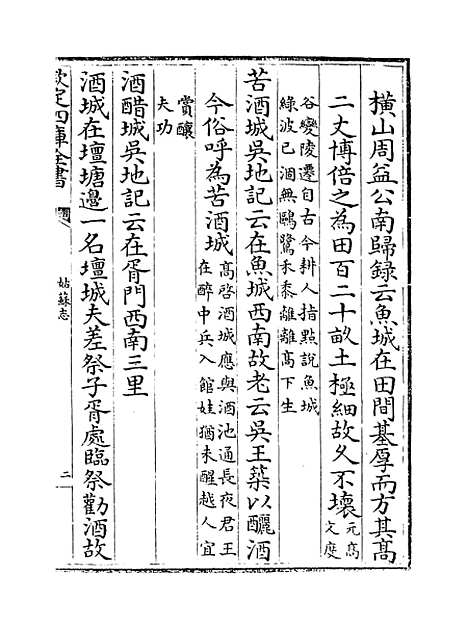 橫山周益公南歸録云魚城在田間基厚而方其髙
二丈博倍之為田百二十畝土極細故久不壞
元髙文度
谷變陵遷自古今耕人指點說魚城
綠波已涸無鷗鷺禾黍離離髙下生
苦酒城吳地記云在魚城西南故老云吳王築以釃酒
今俗呼為苦酒城
髙啓酒城應與酒池通長夜君王
在醉中兵入館娃猶未醒越人宜
賞釀
夫功
酒醋城吳地記云在胥門西南三里
酒城在壇塘邊一名壇城夫差祭子胥處臨祭勸酒故
欽定四庫全書
姑蘇志
二